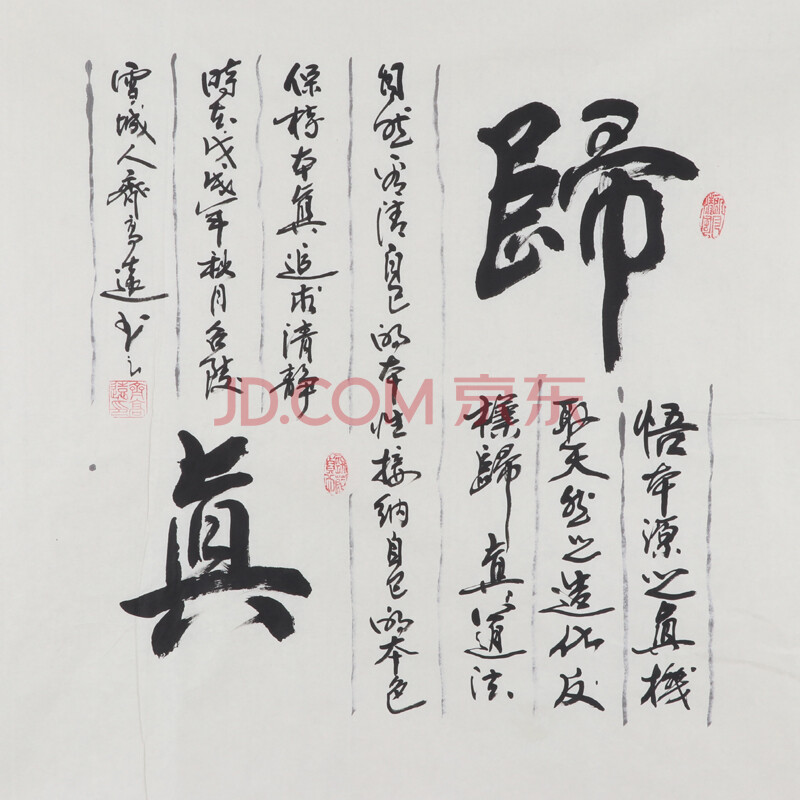 歸
真
悟本源之真機
取天然之造化反
樸歸真道法
自然看清自己的本性接纳自己的本色
保持本真追求清静
時在戊戌年秋月陵
雪城人齊高遠书之
JD.COM 京东